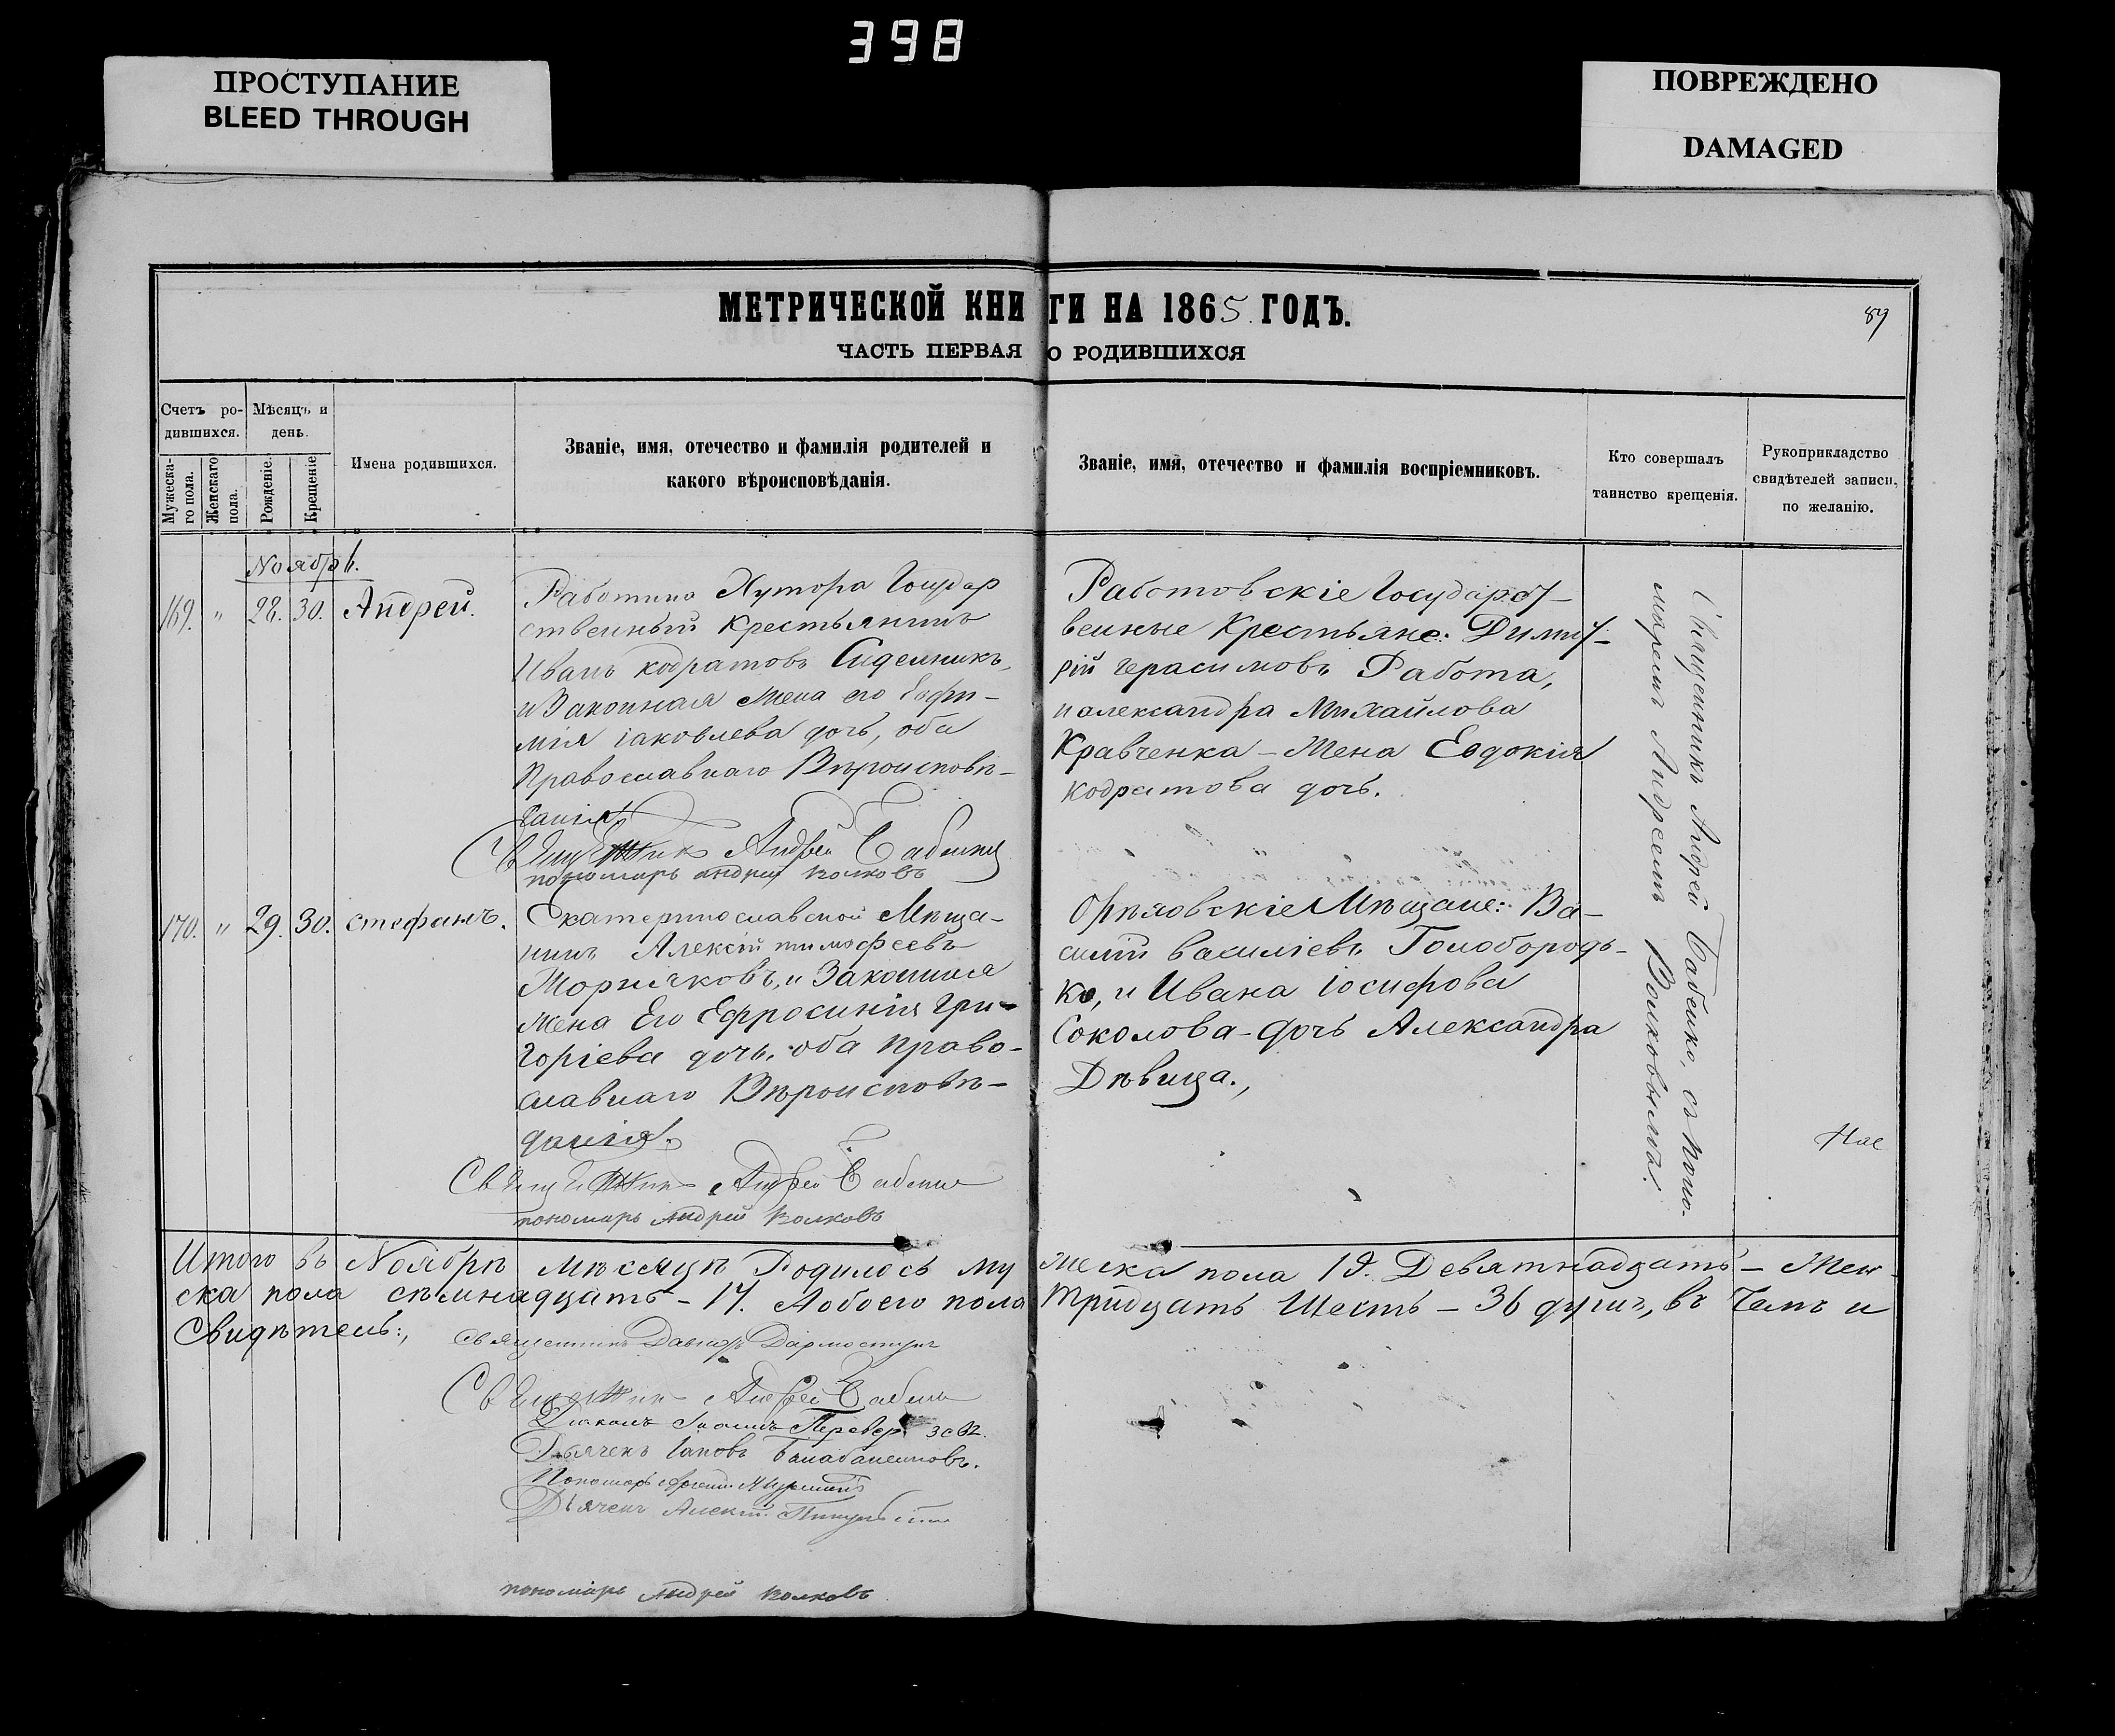 398
ПРОСТУПАНИЕ
BLEED THROUGH
ПОВРЕЖДЕНО
DAMAGED
МЕТРИЧЕСКОЙ КНИГИ НА 1865 ГОДЪ.
89
ЧАСТЬ ПЕРВАЯ О РОДИВШИХСЯ
Счетъ ро-
дившихся.
Мужеска-
го пола.
Женскаго
пола.
Мѣсяцъ и
день.
Рожденіе.
Крещеніе
Имена родившихся.
Званіе, имя, отечество и фамилія родителей и
какого вѣроисповѣданія.
Званіе, имя, отечество и фамилія воспріемниковъ.
Кто совершалъ
таинство крещенія.
Рукоприкладство
свидѣтелей записи,
по желанію.
Ноябрь.
169. " 28. 30. Андрей.
Работина Хутора Государ
ственный Крестьянинъ
Иванъ кодратовъ Сиделникъ,
и Законная Жена его Евфи-
мія іаковлева дочь, оба
Православнаго Вѣроисповѣ-
данія.
Священникъ Андрей Бабенко
пономарь андрей волковъ
Работовскіе Государст-
венные Крестьяне: Димит-
рій герасимовъ Работа,
и александра Михайлова
Кравченка - Жена Евдокія
кодратова дочь.
170. " 29. 30. стефанъ.
Екатеринославской Мѣща-
нинъ Алексій тимофеевъ
Морняковъ, и Законная
Жена Его Ефросинія Гри-
горіева дочь, оба Право-
славнаго Вѣроисповѣ-
данія.
Священникъ Андрей Бабенко
пономарь Андрей волковъ
Орѣховскіе Мѣщане: Ва-
силій василіевъ Голобородь-
ко, и Ивана іосифова
Соколова - дочь Александра
Дѣвица.,
Священникъ Андрей Бабенко, съ поно-
маремъ Андреемъ Волковымъ.
Итого въ Ноябрѣ Мѣсяцѣ Родилось му
жеска пола 19. Девятнадцать - Жен-
ска пола сѣмнадцать - 17. Aобоего пола
тридцать Шесть - 36 душъ, въ чемъ и
Свидѣтель:,
священникъ Давидъ
Священникъ Андрей Бабенко
Діаконъ Іоаннъ
Дьячекъ Іаковъ
Пономарь
Дьячекъ Алексій
пономарь Андрей волковъ